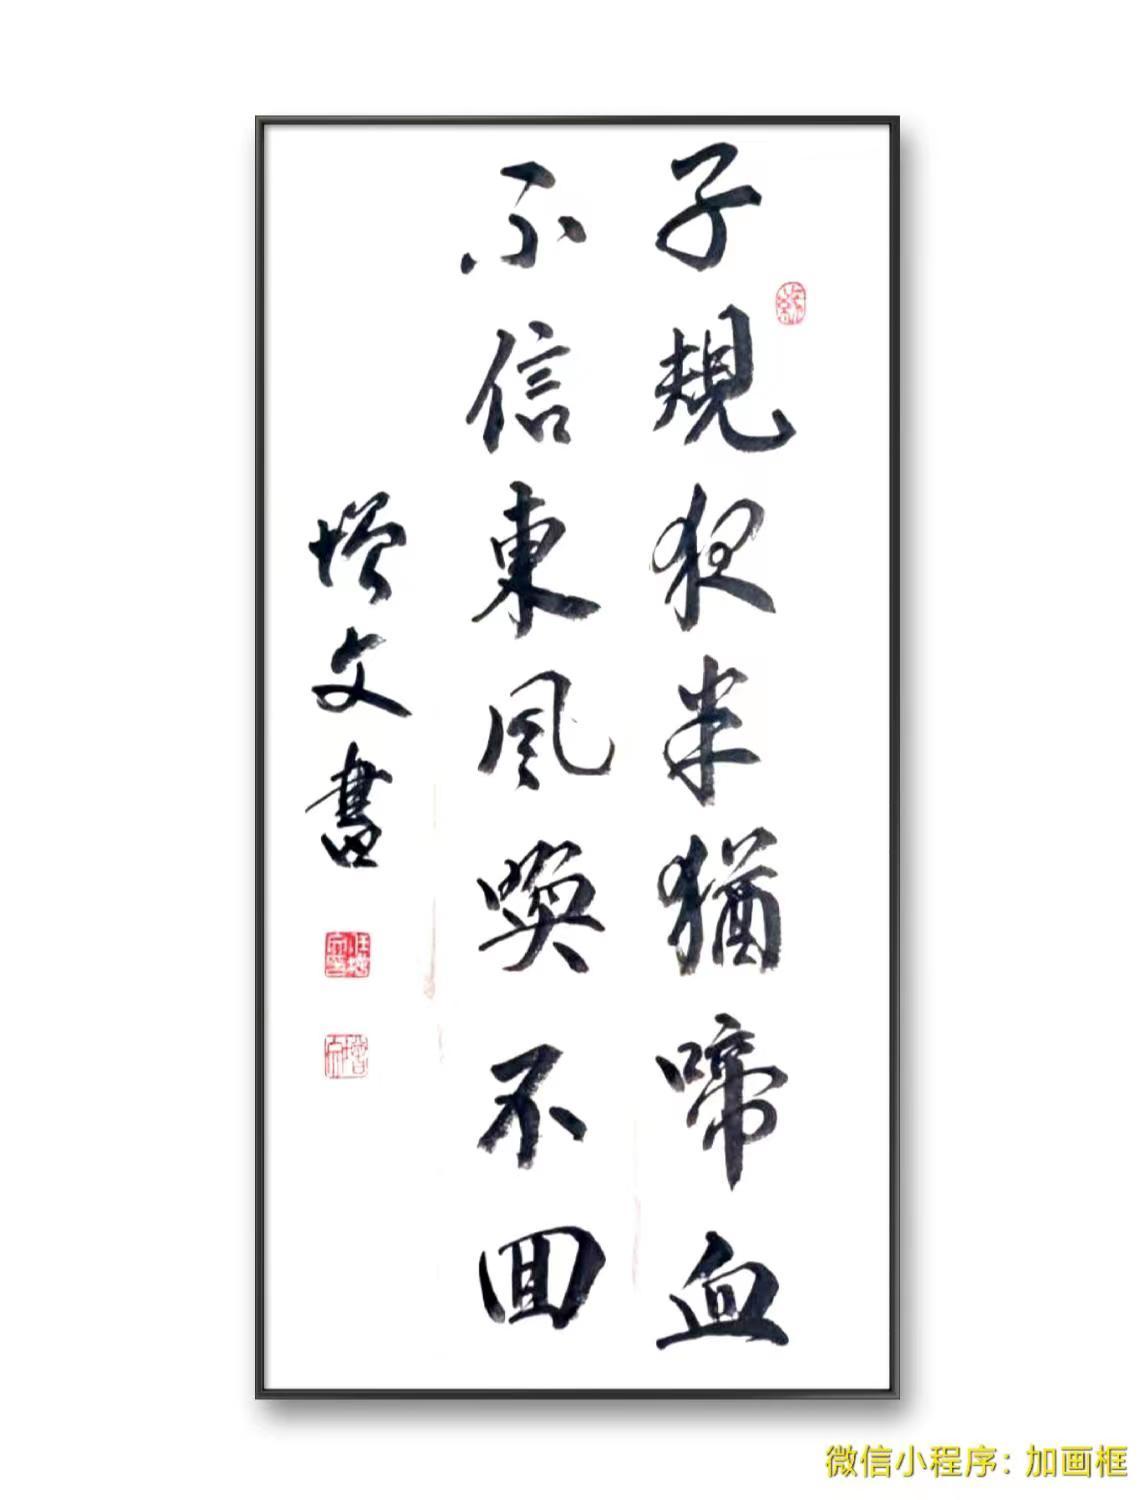 子規夜半猶啼血
不信東風喚不回
增文書
微信小程序：加画框